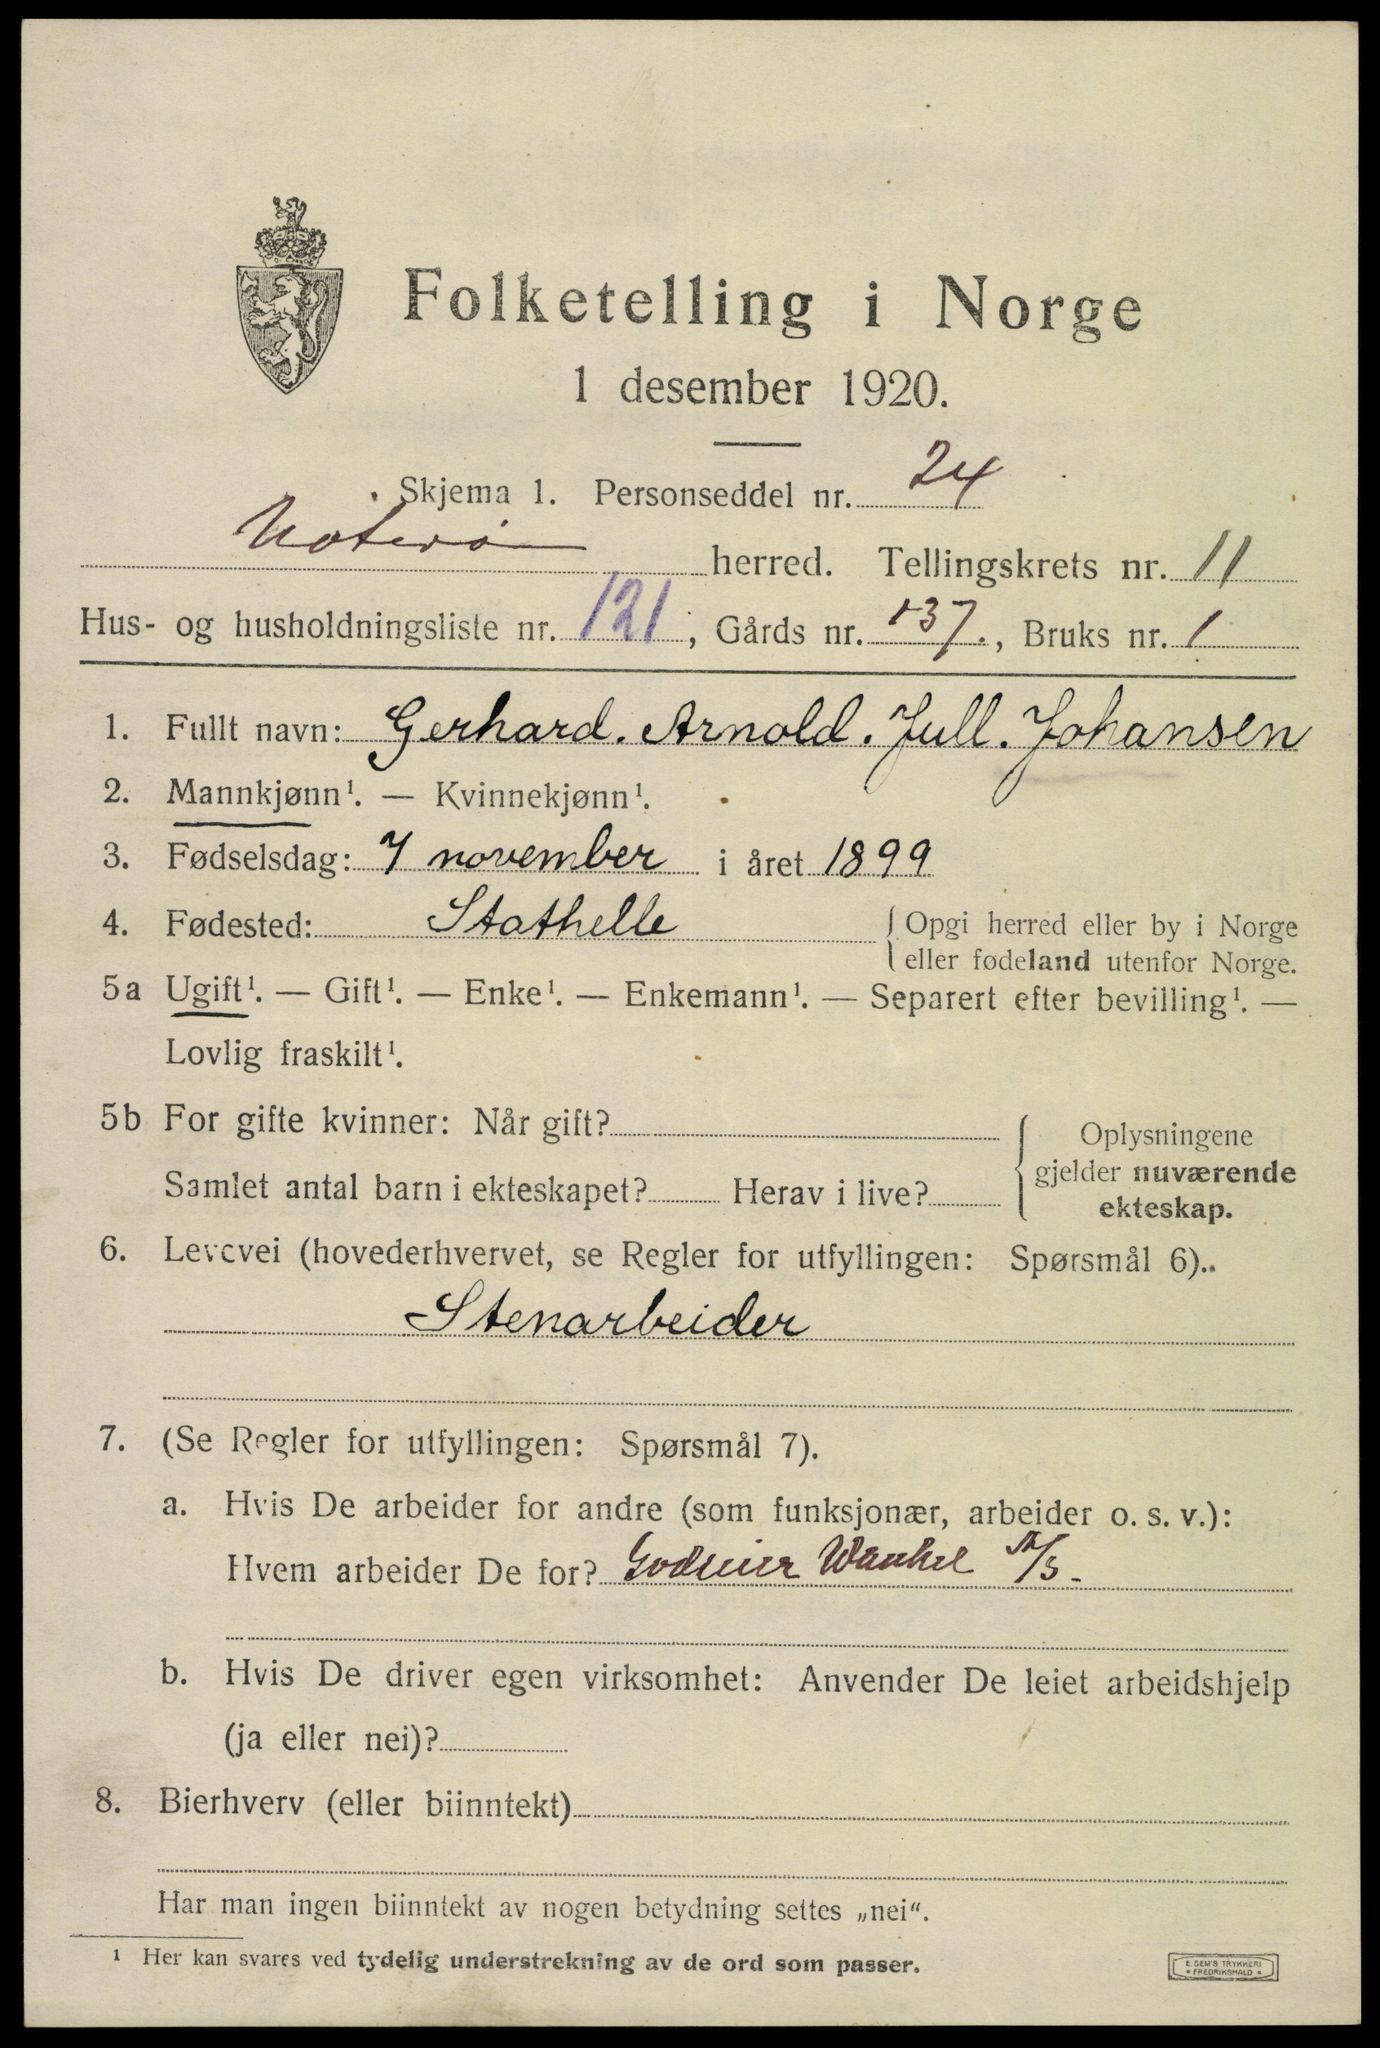 Folketelling i Norge
1 desember 1920.
Skjema 1. Personseddel nr. 24
Nøterø herred. Tellingskrets nr. 11
Hus- og husholdningsliste nr. 121, Gårds nr. 137., Bruks nr. 1
1. Fullt navn: Gerhard. Arnold. Jull. Johansen
2. Mannkjønn¹. — Kvinnekjønn¹.
3. Fødselsdag: 7 november i året 1899
4. Fødested: Stathelle { Opgi herred eller by i Norge
eller fødeland utenfor Norge.
5a Ugift¹. — Gift¹. — Enke¹. — Enkemann¹. — Separert efter bevilling¹. —
Lovlig fraskilt¹.
5b For gifte kvinner: Når gift?
Samlet antal barn i ekteskapet? Herav i live?
Oplysningene
gjelder nuværende
ekteskap.
6. Levevei (hovederhvervet, se Regler for utfyllingen: Spørsmål 6)..
Stenarbeider
7. (Se Regler for utfyllingen: Spørsmål 7).
a. Hvis De arbeider for andre (som funksjonær, arbeider o. s. v.):
Hvem arbeider De for? A/S.
b. Hvis De driver egen virksomhet: Anvender De leiet arbeidshjelp
(ja eller nei)?
8. Bierhverv (eller biinntekt)
Har man ingen biinntekt av nogen betydning settes „nei“.
¹ Her kan svares ved tydelig understrekning av de ord som passer.
E. SEM'S TRYKKERI
• FREDRIKSHALD •